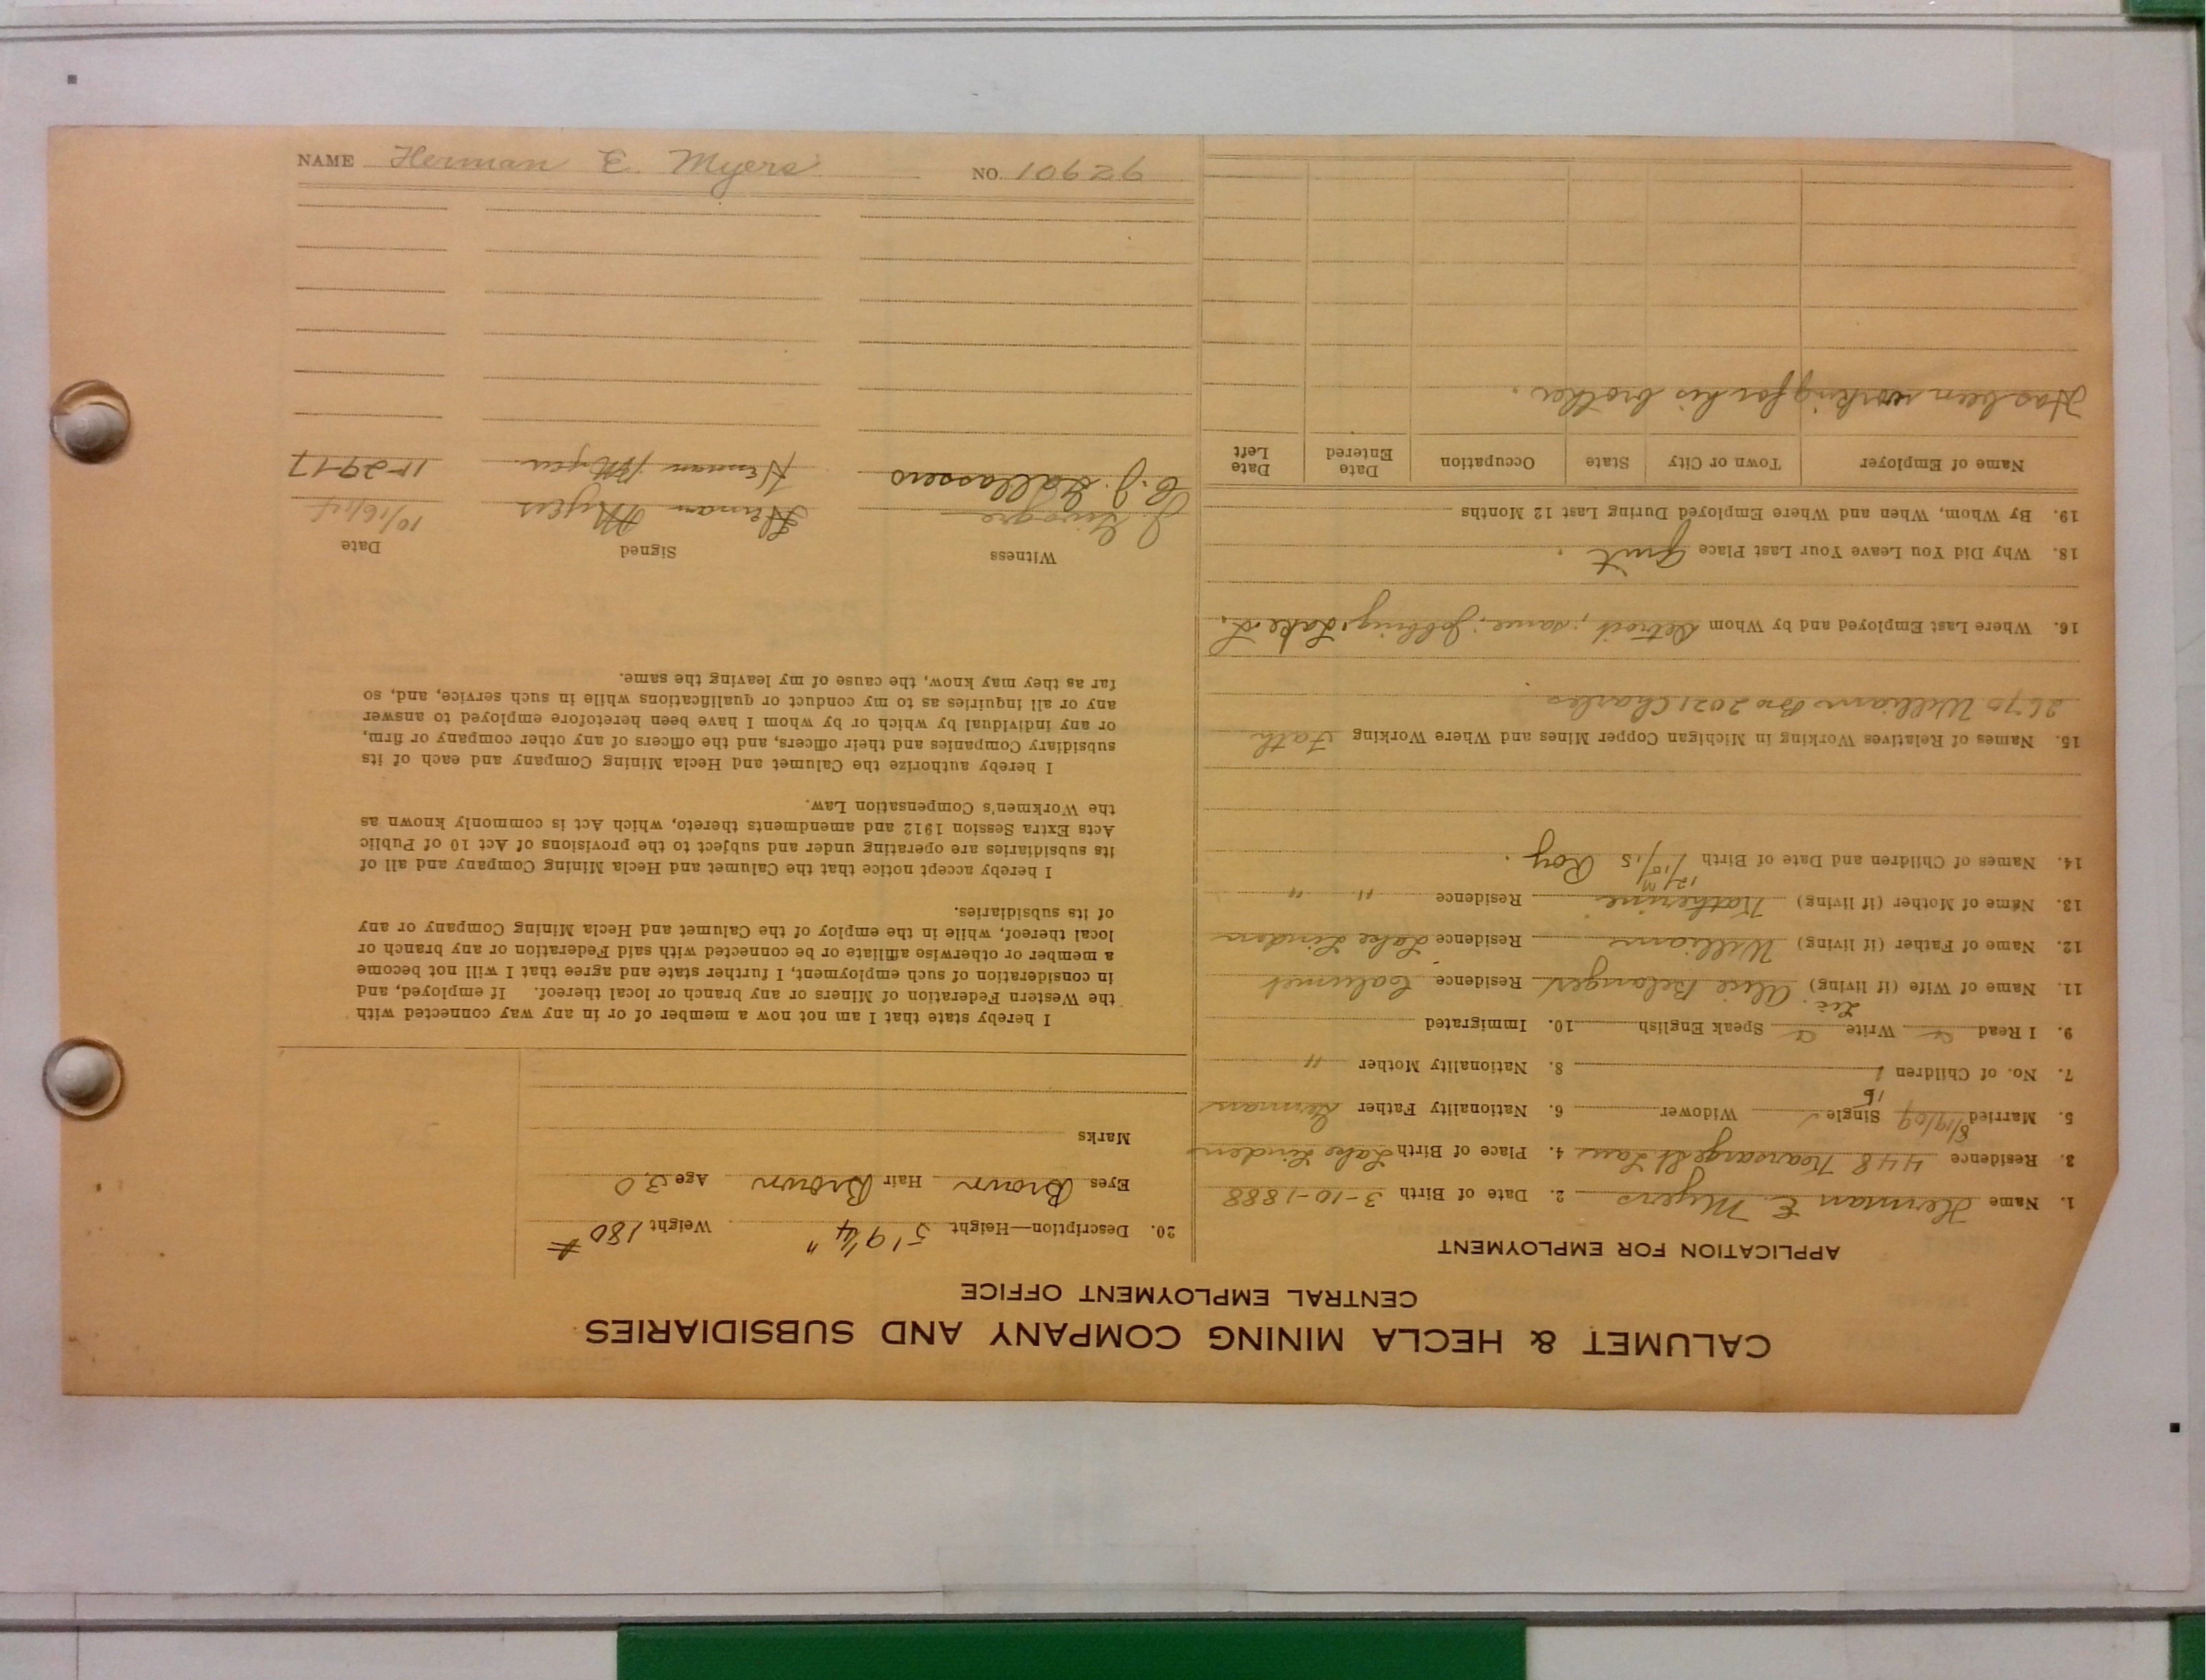 NAME Herman E. Myers NO. 10626
CALUMET & HECLA MINING COMPANY AND SUBSIDIARIES
CENTRAL EMPLOYMENT OFFICE
APPLICATION FOR EMPLOYMENT
1. Name Herman E. Myers 2. Date of Birth 3-10-1888
3. Residence 448 Kearsarge St Laur 4. Place of Birth Lake Linden
5. Married 8/19/09 Single Widower 6. Nationality Father German
7. No. of Children 1 8. Nationality Mother "
9. I Read Write Speak English 10. Immigrated
11. Name of Wife (if living) Alice Belanger Residence Calumet
12. Name of Father (if living) William Residence Lake Linden
13. Name of Mother (if living) Katherine Residence " "
14. Names of Children and Date of Birth Roy.
15. Names of Relatives Working in Michigan Copper Mines and Where Working Fath
2670 William Bro 2021 Charles
16. Where Last Employed and by Whom Detroit; same; Jobbing, Lake L.
18. Why Did You Leave Your Last Place Quit.
19. By Whom, When and Where Employed During Last 12 Months
Name of Employer Town or City State Occupation Date Entered Date Left
Has been working for his brother.
20. Description—Height 5' 9 1/4" Weight 180 #
Eyes Brown Hair Brown Age 30
Marks
I hereby state that I am not now a member of or in any way connected with
the Western Federation of Miners or any branch or local thereof. If employed, and
in consideration of such employment, I further state and agree that I will not become
a member or otherwise affiliate or be connected with said Federation or any branch or
local thereof, while in the employ of the Calumet and Hecla Mining Company or any
of its subsidiaries.
I hereby accept notice that the Calumet and Hecla Mining Company and all of
its subsidiaries are operating under and subject to the provisions of Act 10 of Public
Acts Extra Session 1912 and amendments thereto, which Act is commonly known as
the Workmen's Compensation Law.
I hereby authorize the Calumet and Hecla Mining Company and each of its
subsidiary Companies and their officers, and the officers of any other company or firm,
or any individual by which or by whom I have been heretofore employed to answer
any or all inquiries as to my conduct or qualifications while in such service, and, so
far as they may know, the cause of my leaving the same.
Witness Signed Date
Herman Myers 10/16/15
Herman Myers 11-29-17